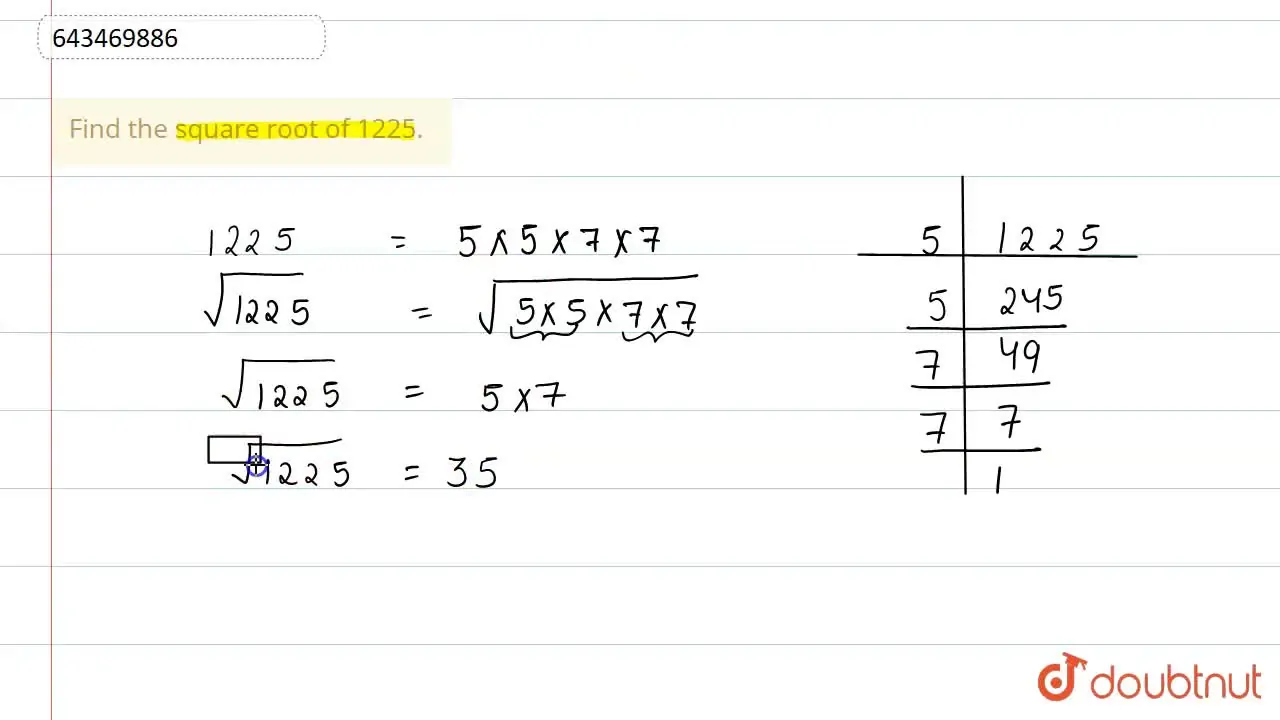 643469886
Find the square root of 1225.
1225 = 5 × 5 × 7 × 7
√1225 = √5 × 5 × 7 × 7
√1225 = 5 × 7
√1225 = 35
5 | 1225
5 | 245
7 | 49
7 | 7
1
doubtnut